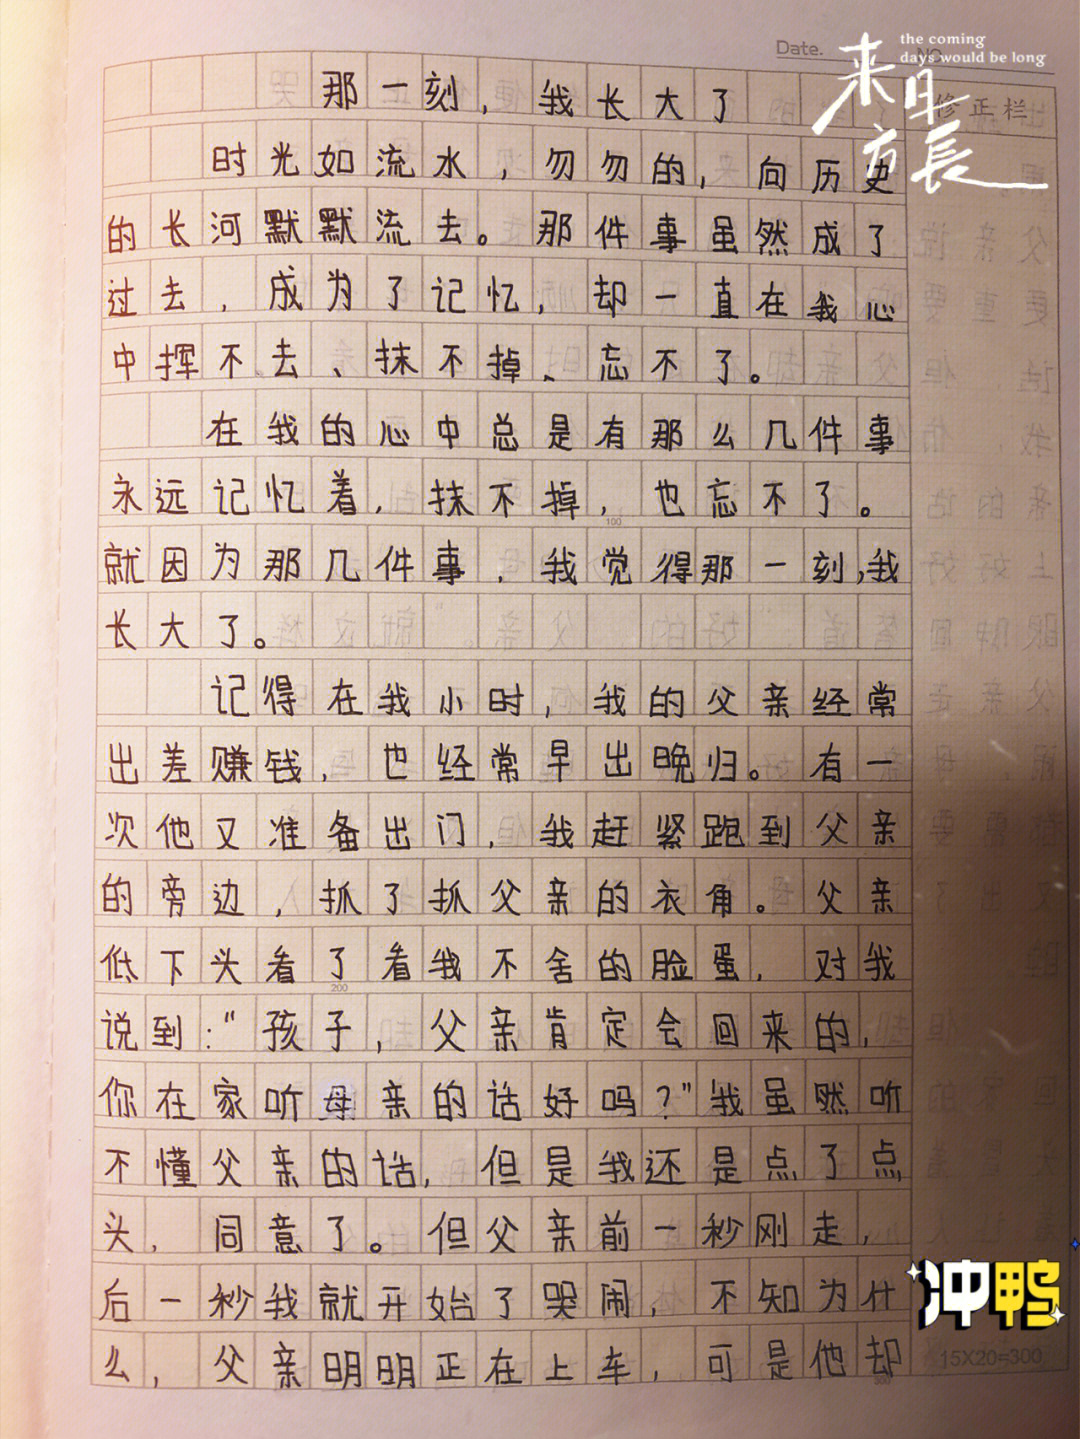 Date.
NO.
the coming
days would be long
来日
方長
修正栏
那一刻，我长大了
时光如流水，勿勿的，向历史
的长河默默流去。那件事虽然成了
过去，成为了记忆，却一直在我心
中挥不去、抹不掉、忘不了。
在我的心中总是有那么几件事
永远记忆着，抹不掉，也忘不了。
100
就因为那几件事，我觉得那一刻，我
长大了。
记得在我小时，我的父亲经常
出差赚钱，也经常早出晚归。有一
次他又准备出门，我赶紧跑到父亲
的旁边，抓了抓父亲的衣角。父亲
低下头看了看我不舍的脸蛋，对我
200
说到："孩子，父亲肯定会回来的，
你在家听母亲的话好吗？"我虽然听
不懂父亲的话，但是我还是点了点
头，同意了。但父亲前一秒刚走，
后一秒我就开始了哭闹，不知为什
么，父亲明明正在上车，可是他却
300
冲鸭
15X20=300